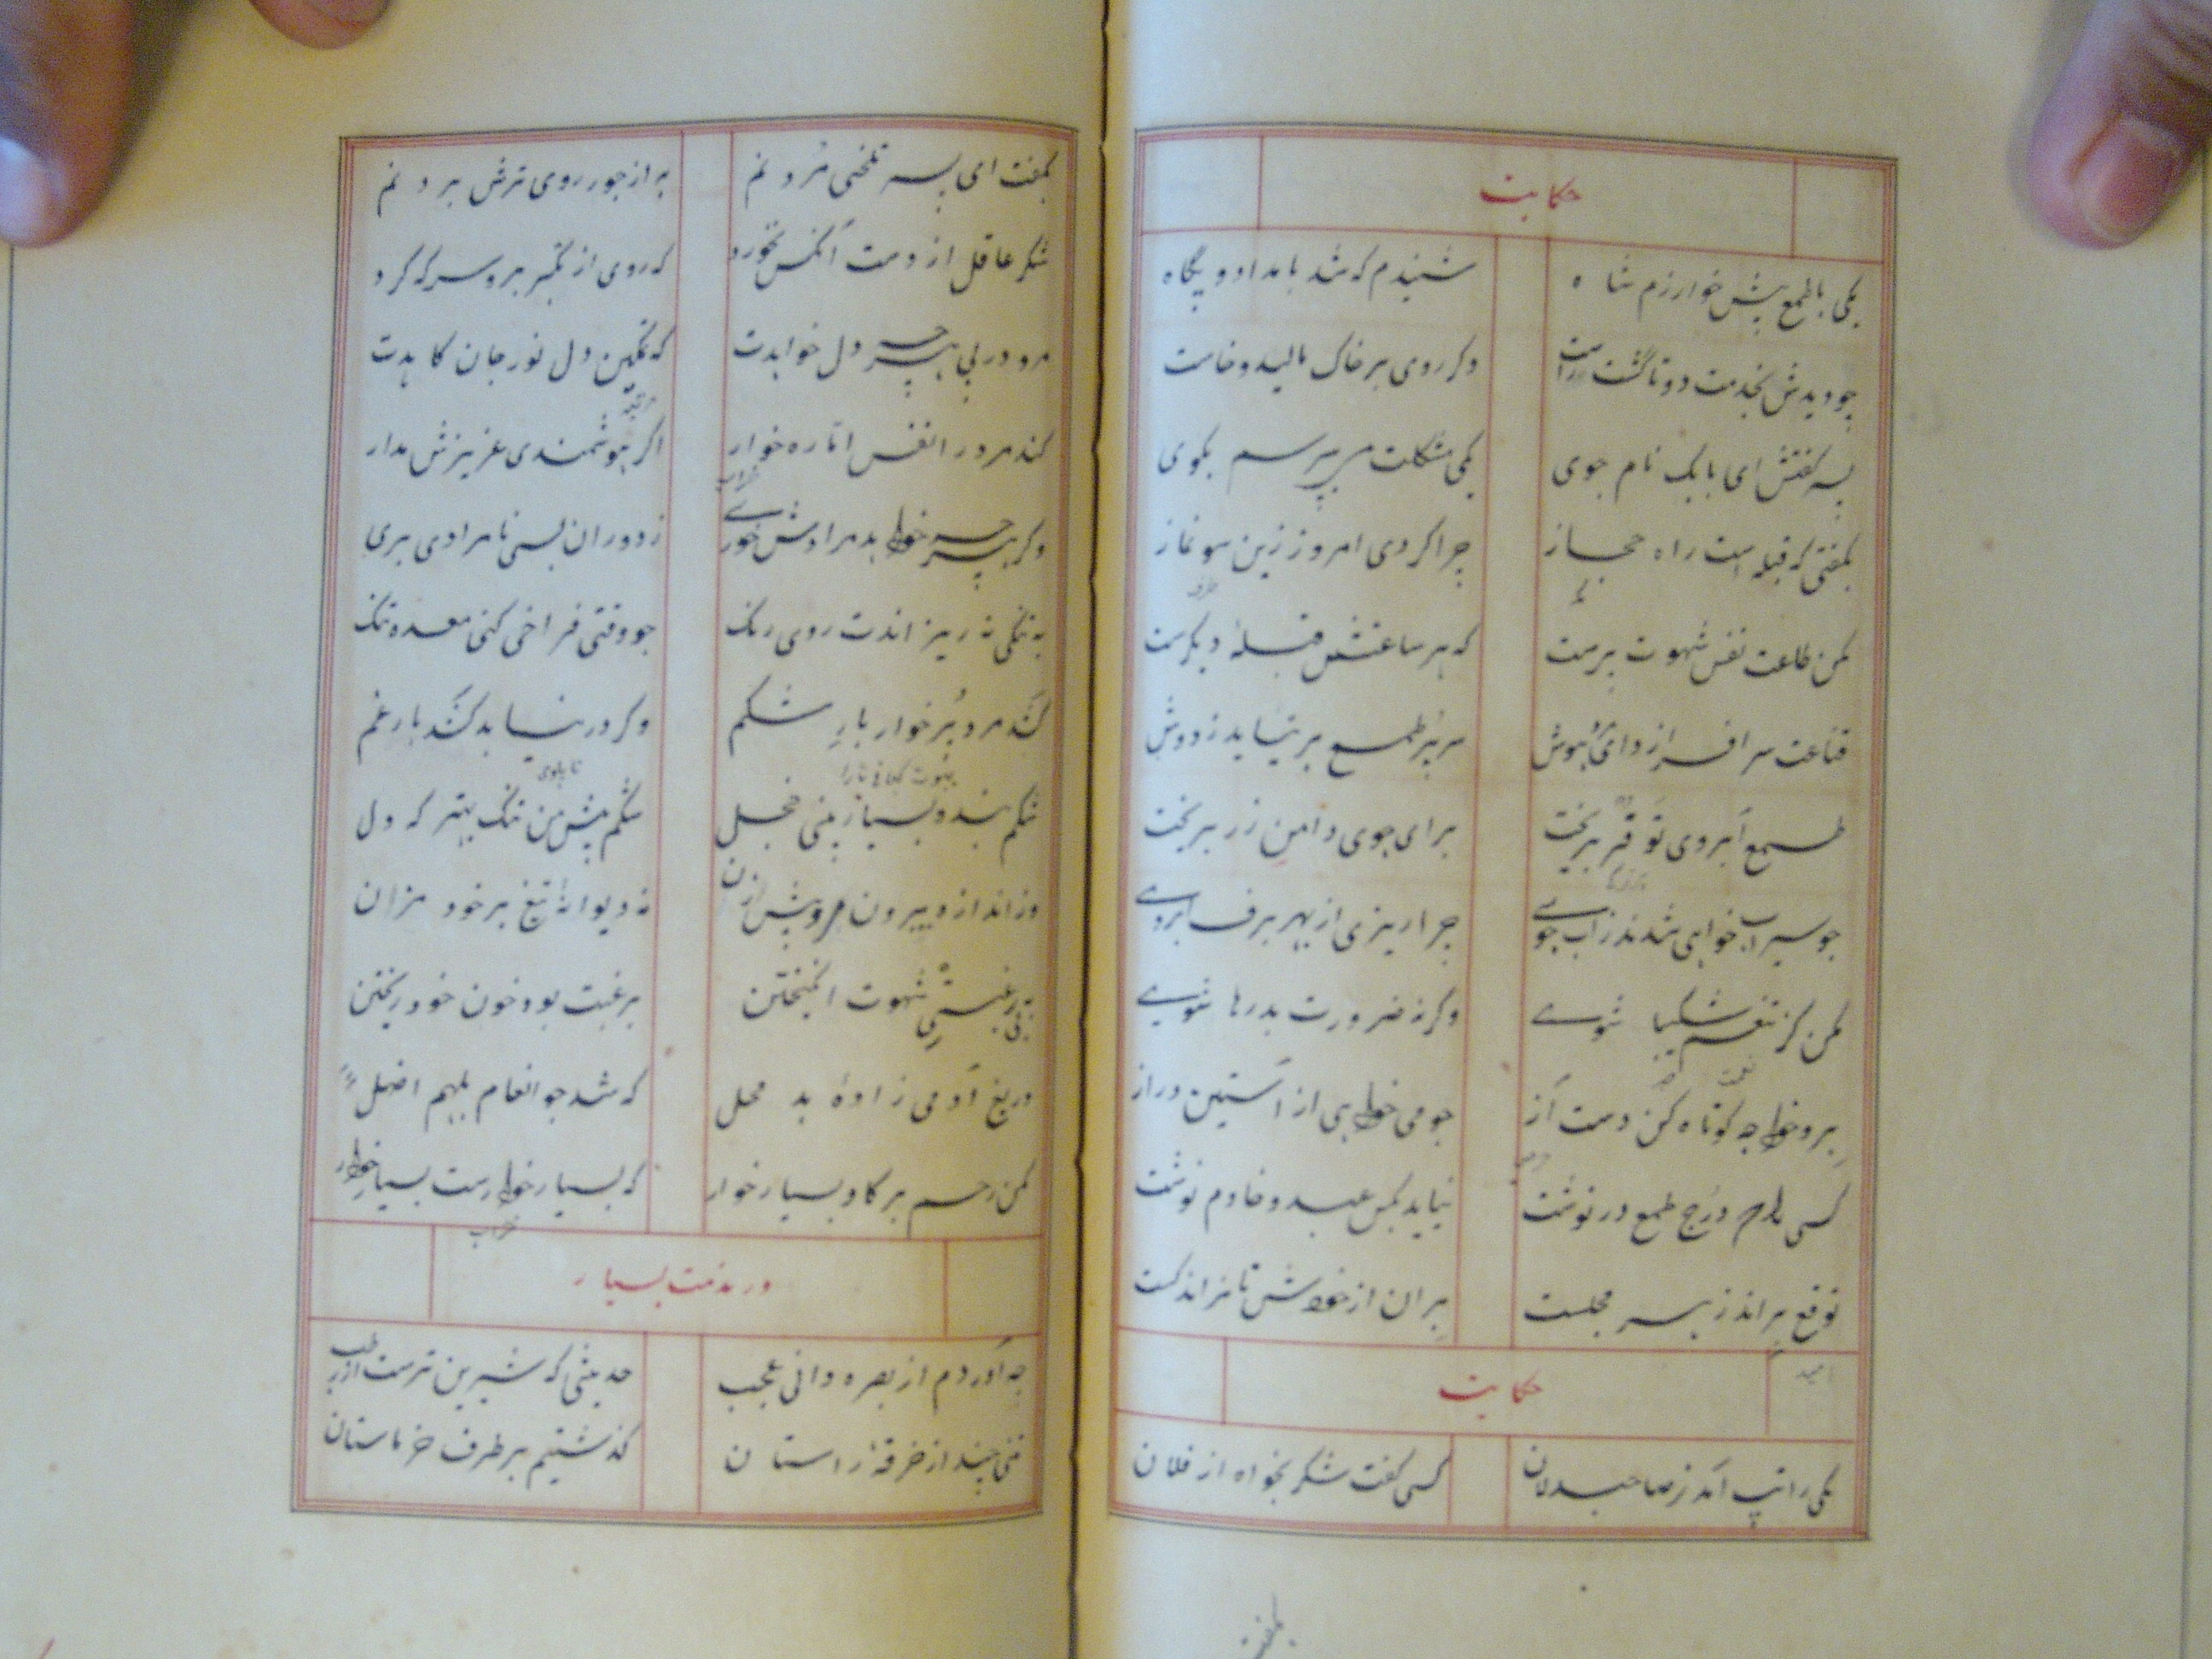 حکایت
یکی با طمع پیش خوارزم شاه شنیدم که شد بامدادو پگاه
چو دیدش بخدمت دوتا گشت راست دکر روی بر خاک مالید و خاست
پسر گفتش ای بابک نام جوی یکی مشکلت میپرسم بکوی
نکفتی که قبله است راه حجاز چرا کردی امروز زین سو نماز
مکن طاعت نفس شهوت پرست که هر ساعتش قبلهٔ دیکرست
قناعت سرافرازد ای مرد هوش سر پر طمع بر نیاید ز دوش
طمع آبروی توقر بریخت برای جوی دامن زر بریخت
جو سیراب خواهی شدن ز اب جوی چرا ریزی از بهر برف ابروی
مکن کز تنعم شکیبا شوی وکرنه ضرورت بدرها شوی
برو خواجه کوتاه کن دست آز جو می خواهی از آستین دراز
کسی را که درج طمع در نوشت نباید بکس عبد و خادم نوشت
توقع براند ز هر مجلست بران از خودش تا نراند کست
حکایت
یکی را تب آمد ز صاحبدلان کسی گفت شکر بخواه از فلان
بکفت
بکفت ای پسر تلخی مردنم به از جور روی ترش بردنم
شکر عاقل از دست آنکس نخورد که روی از تکبر برو سرکه کرد
مرو در پی هرچه دل خواهدت که تمکین دل نور جان کاهدت
کند مرد را نفس اماره خوار اگر هوشمندی عزیزش مدار
وکر هرچه خواهد مرادش خوری ز دوران بسی نامرادی بری
به تنکی نه ریزاندت روی رنک جو وقتی فراخی کنی معده تنک
کشد مرد پرخوار بار شکم وکر در نیابد کشد بار غم
شکم بنده بسیار بینی خجل شکم پیش من تنک بهتر که دل
وز اندازه بیرون مرو پیش زن نه دیوانهٔ تیغ بر خود مزن
بی رغبتی شهوت انگیختن برغبت بود خون خود ریختن
دریغ آدمی زادهٔ بد محل که شد جو انعام بلهم اضل
مکن رحم بر کاو بسیار خوار که بسیار خوارست بسیار خوار
در مذمت بسیار
چه آوردم از بصره دانی عجب حدیثی که شیرین ترست از رطب
تنی چند از خرقهٔ راستان کذشتیم بر طرف خرماستان